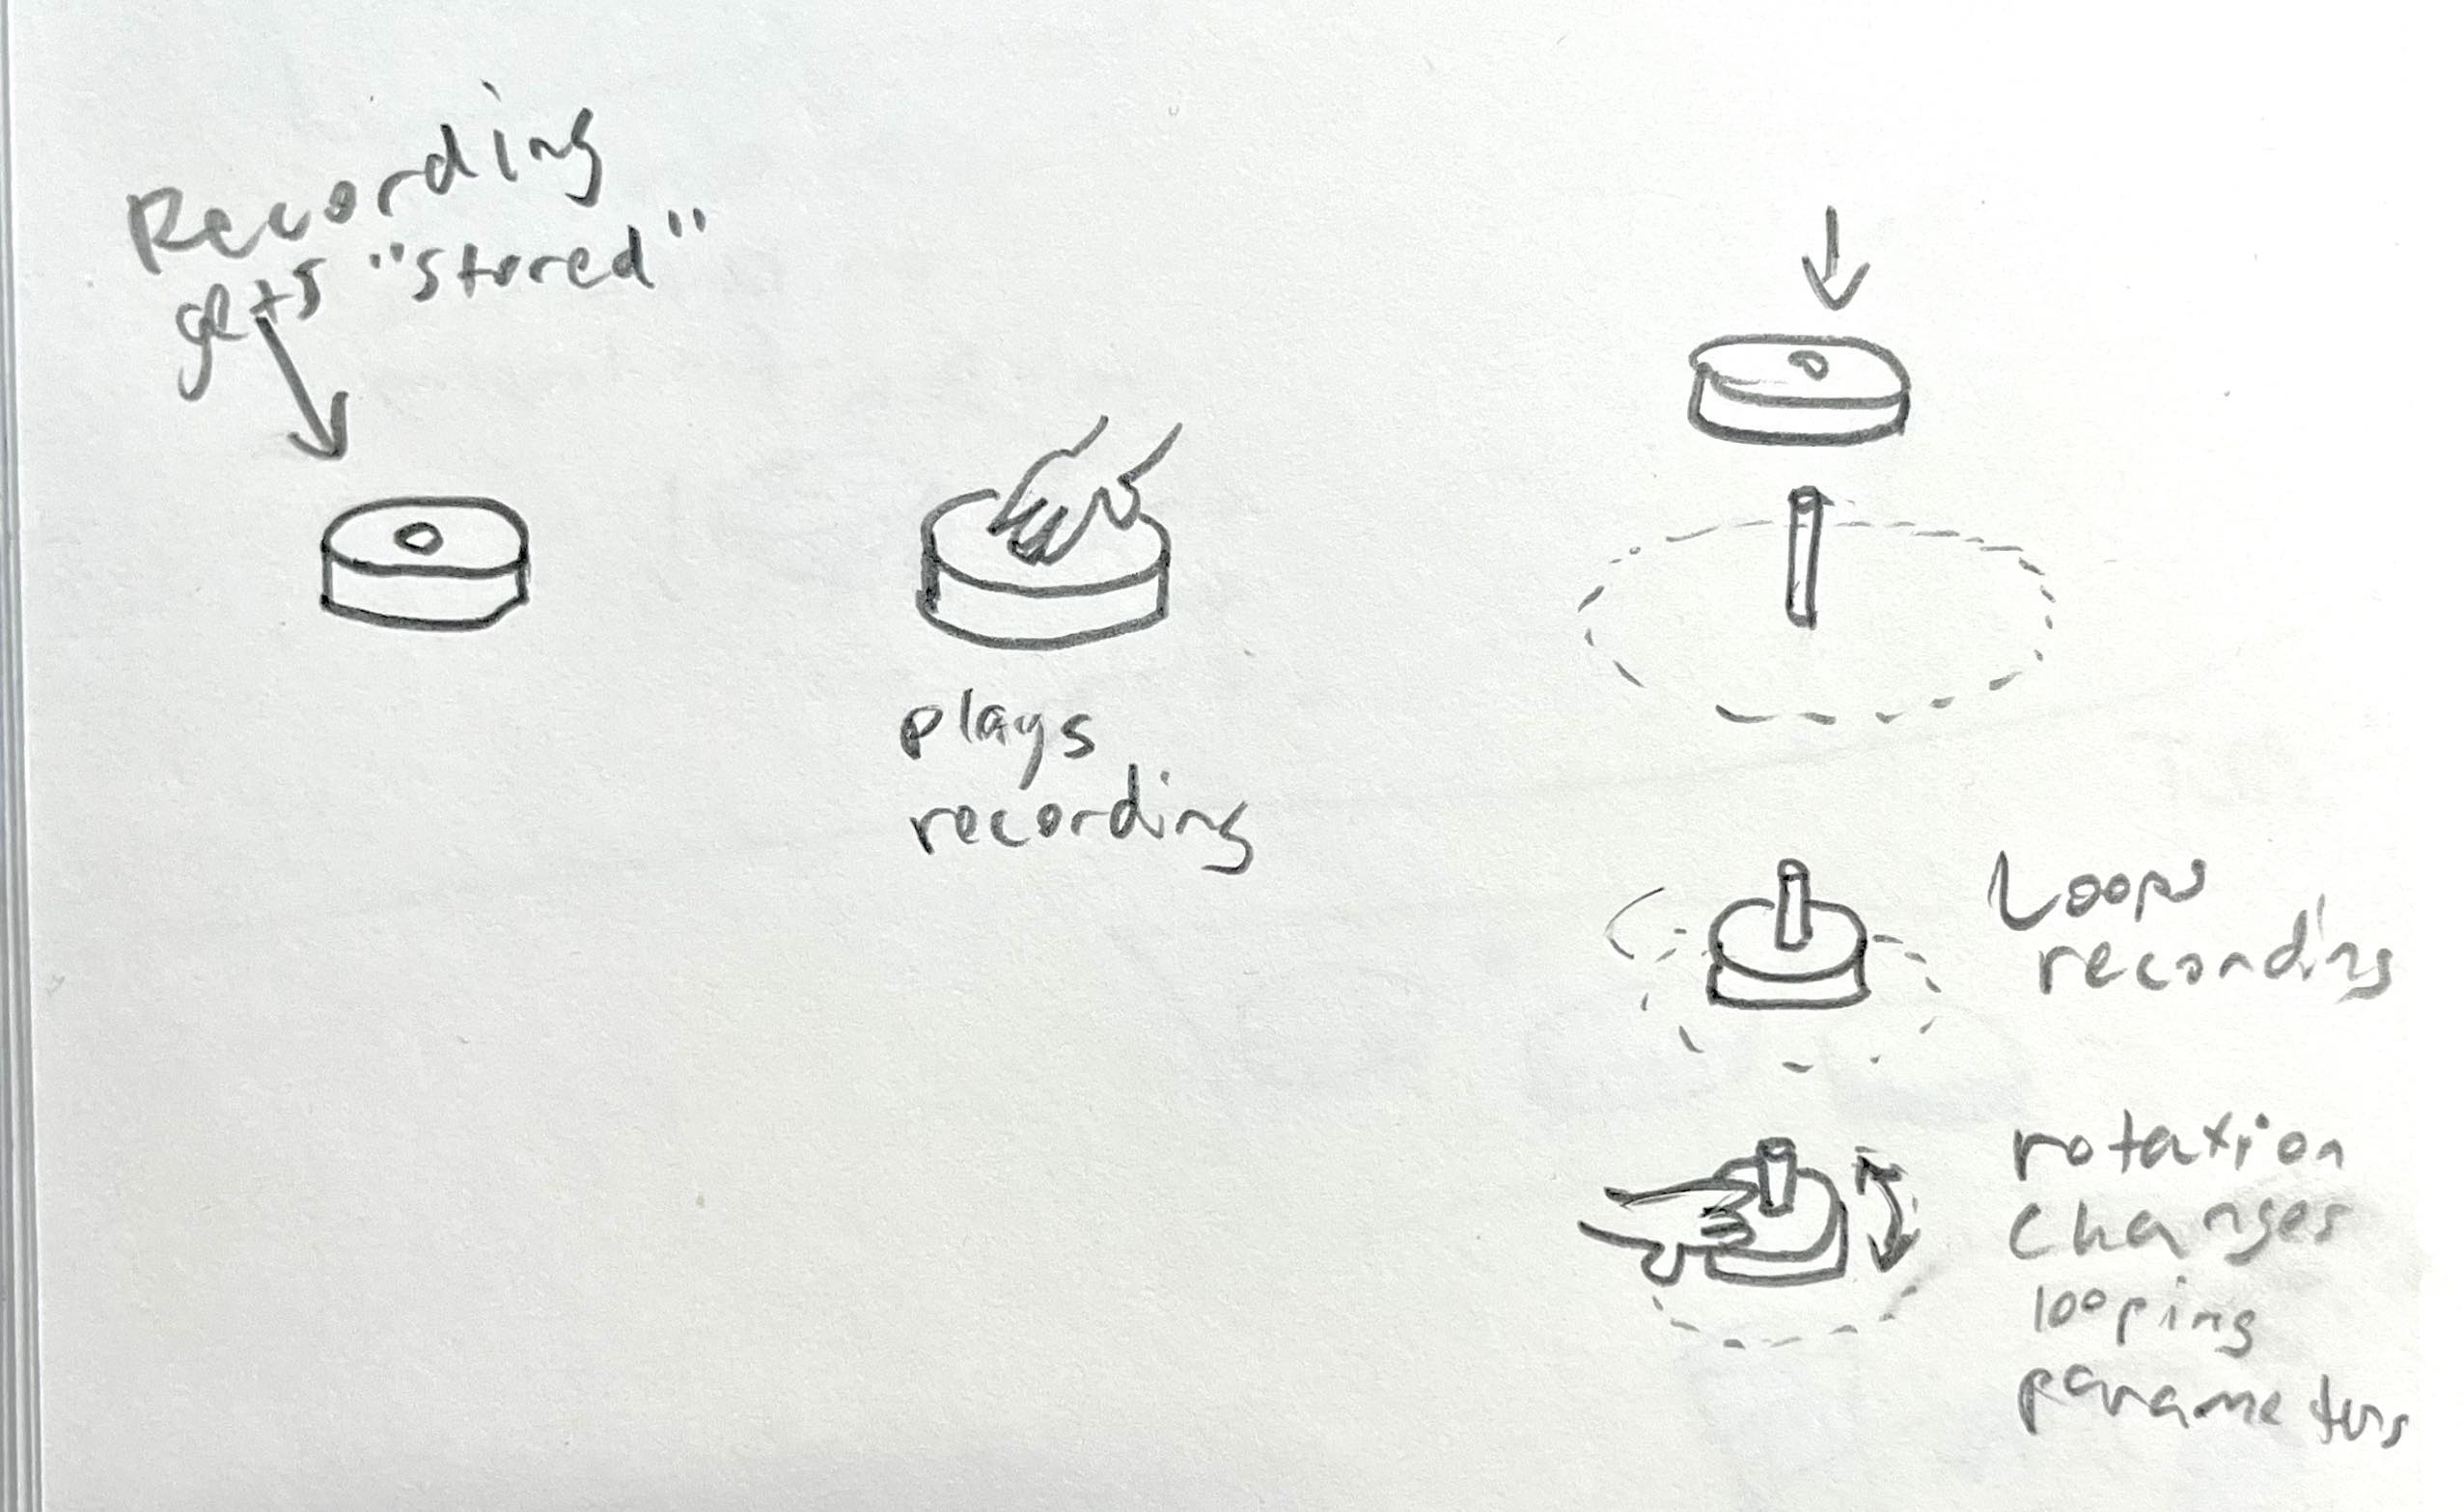 Recording
gets "stored"
plays
recording
Loops
recording
rotation
changes
looping
parameters